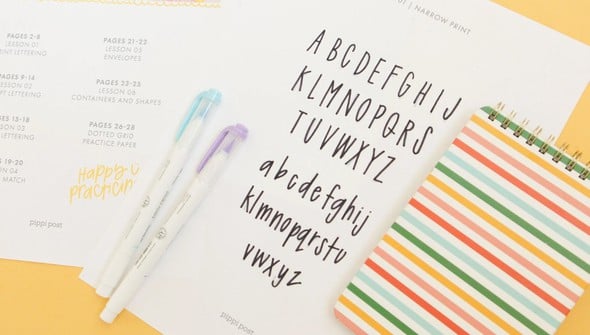 PAGES 2-8
LESSON 01
LETTERING
9-14
02
LETTERING
LETTERING
19-20
04
MATCH
PAGES 21-22
LESSON 05
ENVELOPES
PAGES 23-25
LESSON 06
CONTAINERS AND SHAPES
PAGES 26-28
DOTTED GRID
PRACTICE PAPER
Happy
practicin
pippi post
01 | NARROW PRINT
ABCDEFGHIJ
KLMNOPQRS
TUVWXYZ
abcdefghij
klmnopqrstu
vwxyz
pippi post